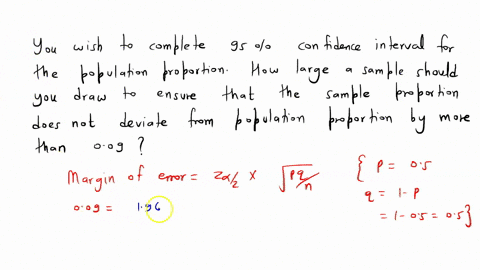 You wish to complete 95% confidence interval for
the population proportion. How large a sample should
you draw to ensure that the sample proportion
does not deviate from population proportion by more
than 0.09?
Margin of error = Zα/2 × √pq/n
{ p = 0.5
0.09 = 1.96
q = 1-p
= 1-0.5 = 0.5}